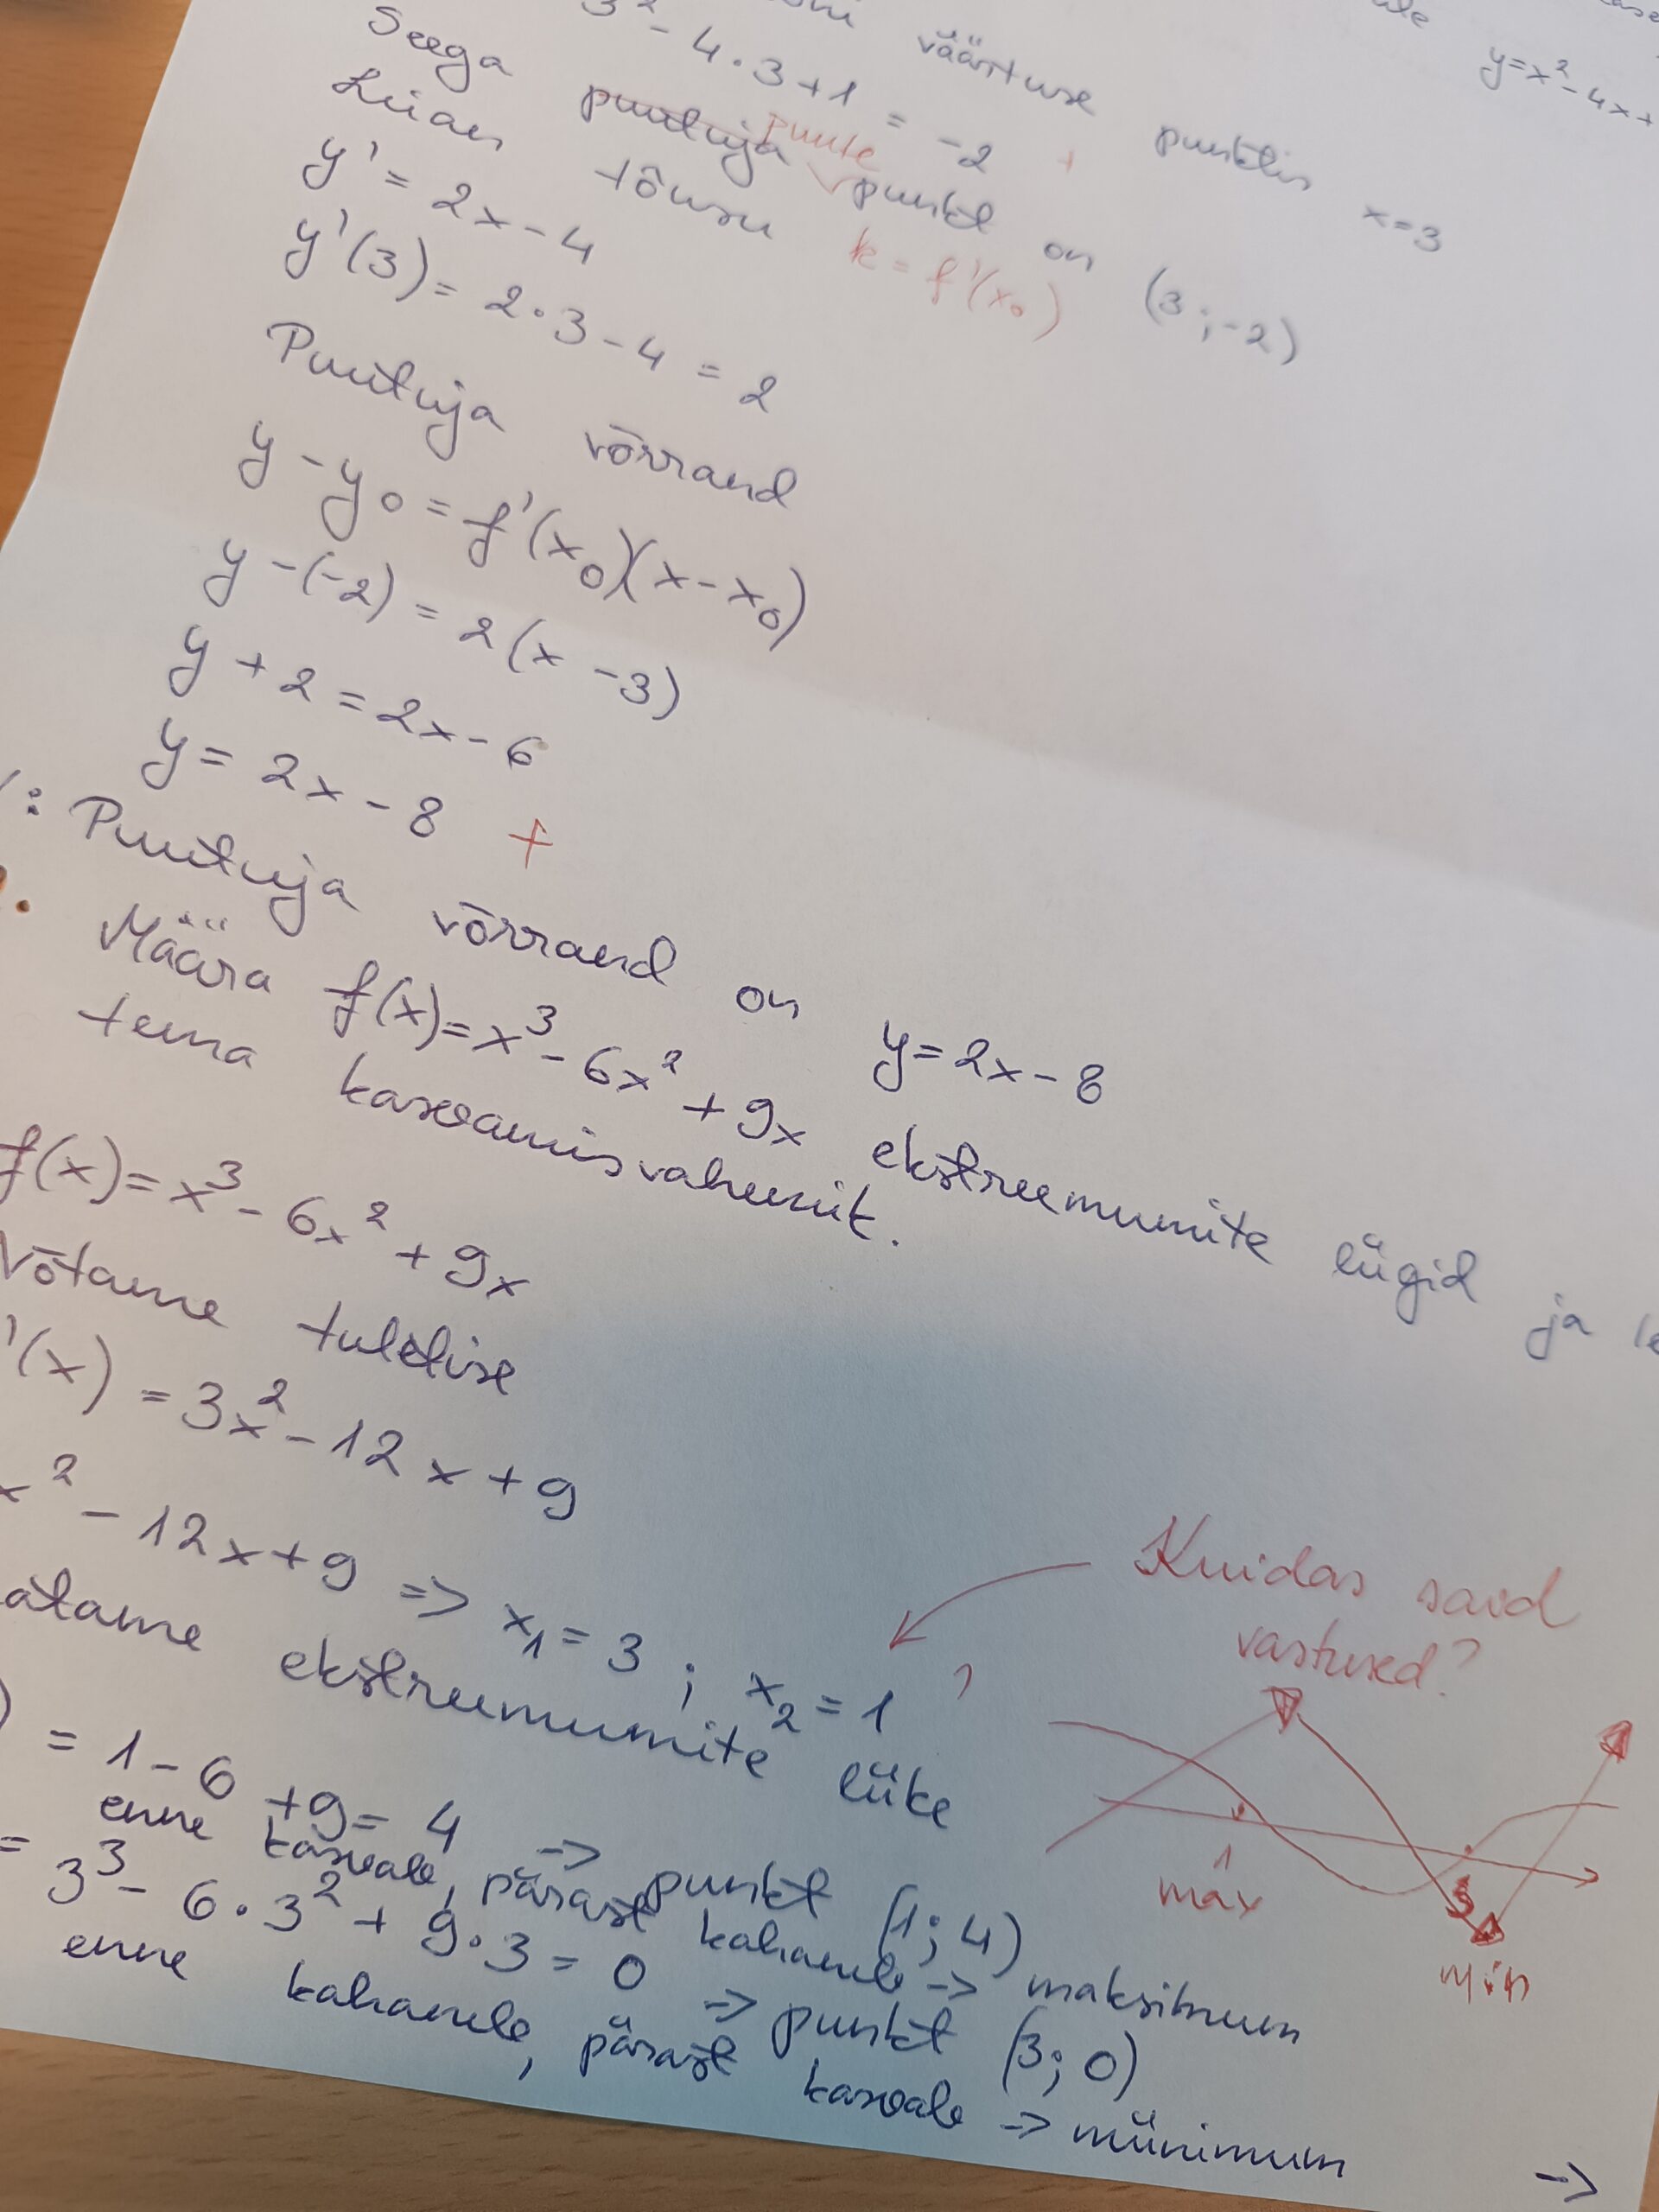 väärtuse punktis x=3
y=x²-4x+
3²-4·3+1 = -2 +
Seega puutuja puute punkt on (3;-2)
Leian tõusu k=f'(x₀)
y' = 2x-4
y'(3) = 2·3-4 = 2
Puutuja võrrand
y-y₀ = f'(x₀)(x-x₀)
y-(-2) = 2(x-3)
y+2 = 2x-6
y = 2x-8 +
: Puutuja võrrand on y=2x-8
Määra f(x)=x³-6x²+9x ekstreemumite liigid ja le
tema kasvamisvahemik.
f(x)=x³-6x²+9x
Võtame tuletise
'(x) = 3x²-12x+9
x²-12x+9 => x₁=3 ; x₂=1 ?
Kuidas said
vastused?
atame ekstreemumite liike
) = 1-6+9=4 -> punkt (1;4)
enne kasvab, pärast kahaneb -> maksimum
= 3³-6·3²+9·3=0 -> punkt (3;0)
enne kahaneb, pärast kasvab -> miinimum
->
1
max
3
min